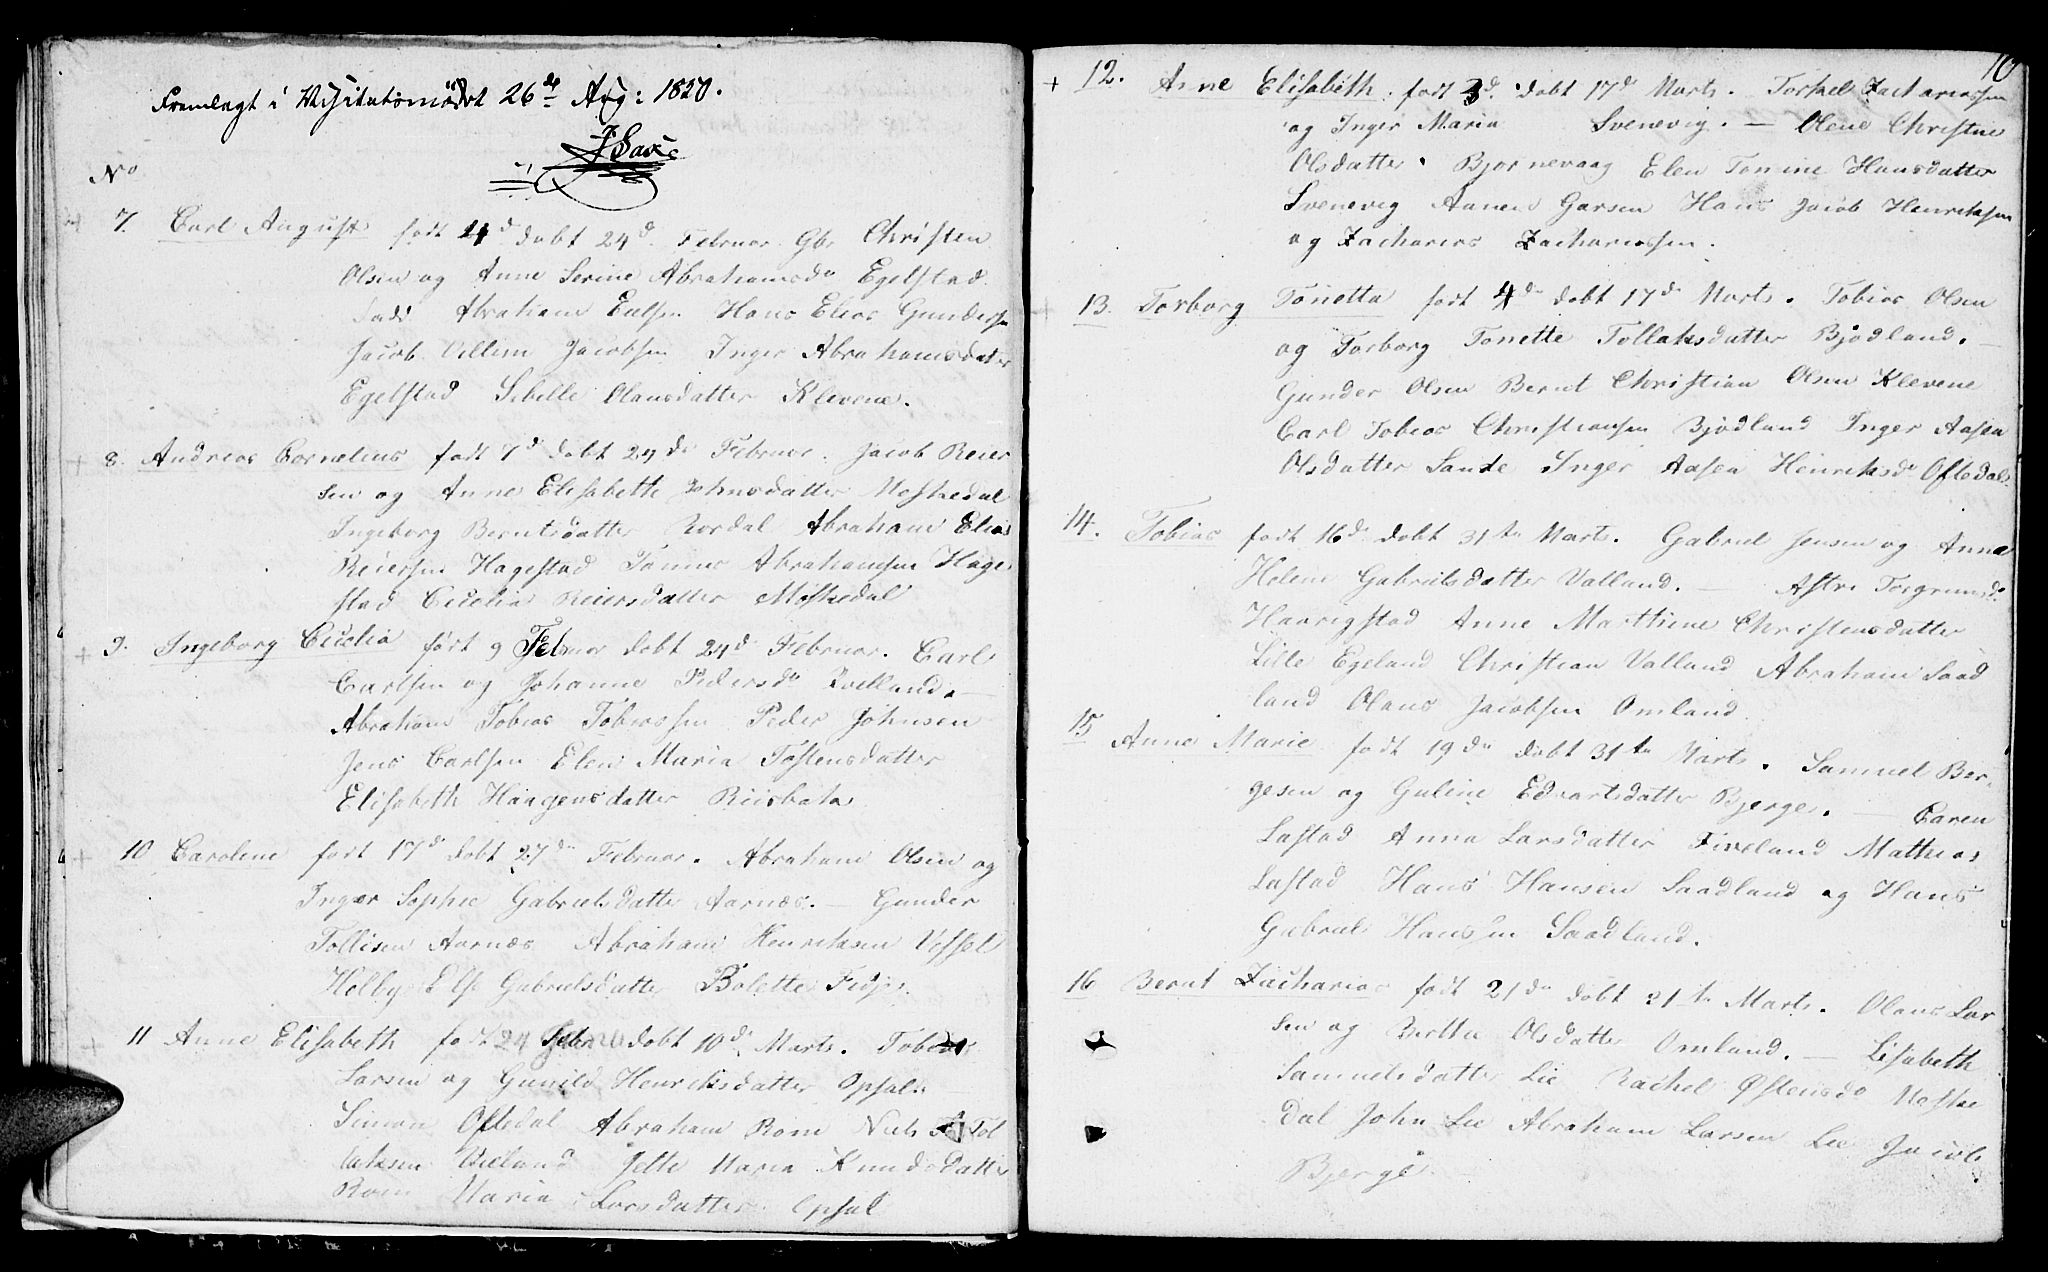 Fremlagt i Visitatsmødet 26de Aug: 1850.
No
7. Carl August født 4d døbt 24d Februar. Gbr Christen
Olsen og Anne Serine Abrahamsdr Egelstad
Fadd Abraham Eielsen Hans Elias Gundersen
Jacob Villim Jacobsen Inger Abrahamsdatter
Egelstad Sibille Olausdatter Klevene.
8. Andreas Cornelius født 7d døbt 24de Februar. Jacob Reier
sen og Anne Elisabeth Johnsdatter Moskedal
Ingeborg Berntsdatter Rordal Abraham Elias
Reiersen Hagestad Tønnes Abrahamsen Hage
stad Cicelia Reiersdatter Moskedal
+ 9. Ingeborg Cicelia født 9 Februar døbt 24d Februar. Carl
Carlsen og Johanne Pedersdr Qvelland. —
Abraham Tobias Tobiassen Peder Johnsen
Jens Carlsen Elen Maria Tostensdatter
Elisabeth Haagensdatter
+ 10 Carolene født 17d døbt 27de Februar. Abraham Olsen og
Inger Sophie Gabrielsdatter Aarnæs. — Gunder
Tollisen Aarnæs Abraham Henriksen
Helby Else Gabrielsdatter Bolette Fidje.
11 Anne Elisabeth født 24 Febr døbt 10de Marts. Tobias
Larsen og Gunild Henriksdatter Opsal. —
Simon Oftedal Abraham Rom Niels Tol
laksen Jette Maria Knudsdatter
Rom Maria Larsdatter Opsal
10
+ 12. Anne Elisabeth født 3d. døbt 17d Marts. Torkel Zachariassen
og Inger Maria Svenevig. — Olene Christine
Olsdatter Bjørnevaag Elen Tomine Hansdatter
Svenevig Aanen Garsen Hans Jacob Henriksen
og Zacharias Zachariassen.
13. Torborg Tonetta født 4de døbt 17de Marts. Tobias Olsen
og Torborg Tonette Tollaksdatter Bjødland. —
Gunder Olsen Bernt Christian Olsen Klevene
Carl Tobias Christiansen Bjødland Inger Aasen
Olsdatter Sande Inger Aasen Henriksdr Oftedal
14. Tobias født 16d døbt 31te Marts. Gabriel Jensen og Anne
Helene Gabrielsdatter Valland. — Astri Torgrimsdr
Haarigstad Anne Marthine Christensdatter
Lille Egeland Christian Valland Abraham Saad
land Olaus Jacobsen Omland
15 Anne Marie født 19de døbt 31te Marts. Samuel Ber
gesen og Guline Edvartsdatter Bjerge. — Caren
Lastad Anna Larsdatter Fiveland Mathias
Lastad Hans Hansen Saadland og Hans
Gabriel Hansen Saadland.
16 Bernt Zacharias født 21de døbt 31te Marts. Olaus Lar
sen og Berthe Olsdatter Omland. — Lisabeth
Samuelsdatter Lie Rachel Østensdr Moske
dal John Lie Abraham Larsen Lie Jacob
Bjerge.